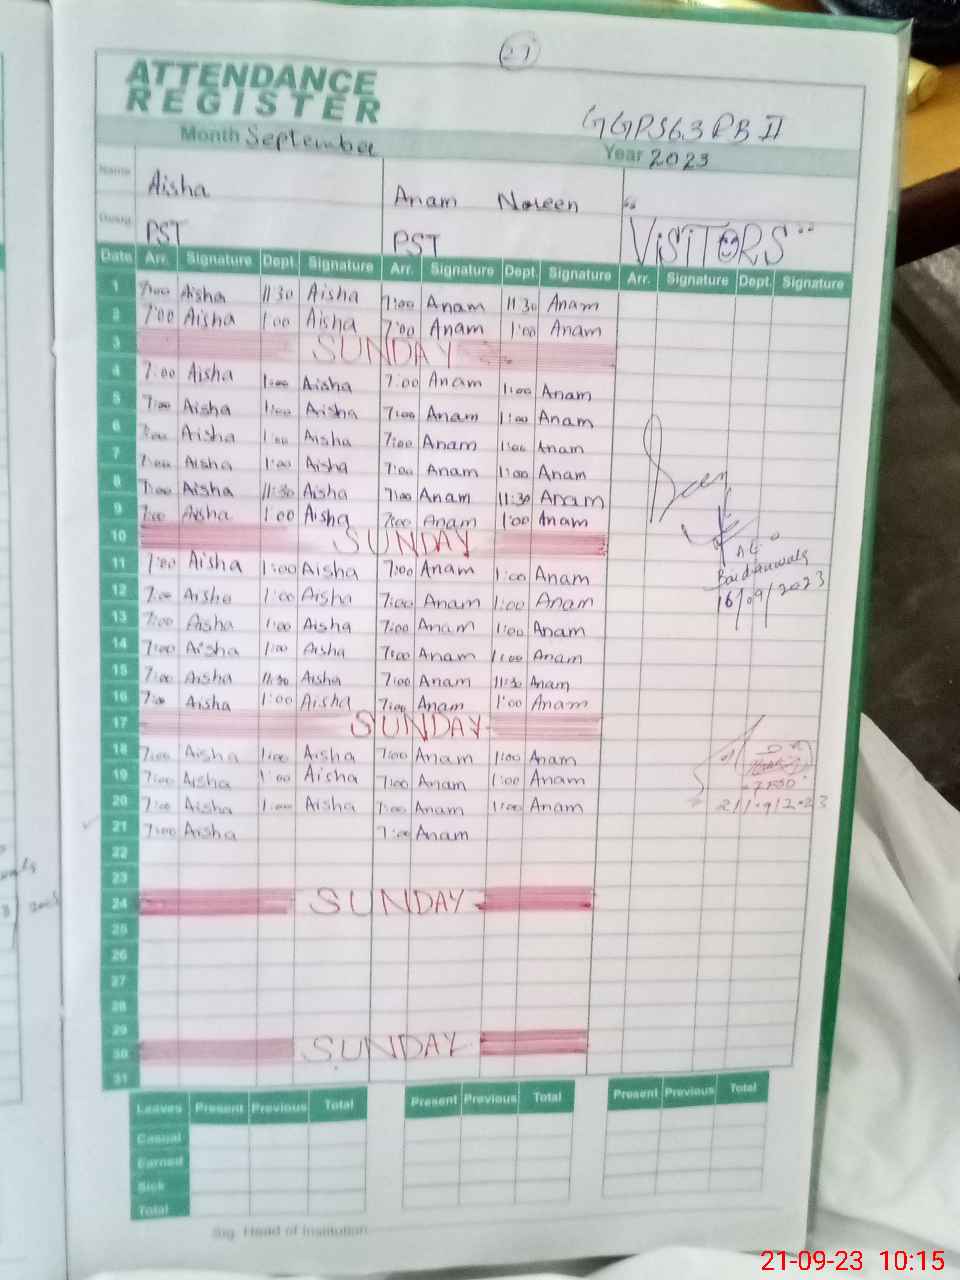 21
ATTENDANCE
REGISTER
GGPS 63 RB II
Month September
Year 2023
Name Aisha Anam Noreen
Desig. PST PST "VISITORS"
Date Arr. Signature Dept. Signature Arr. Signature Dept. Signature Arr. Signature Dept. Signature
1 7:00 Aisha 11:30 Aisha 7:00 Anam 11:30 Anam
2 7:00 Aisha 1:00 Aisha 7:00 Anam 1:00 Anam
3 SUNDAY
4 7:00 Aisha 1:00 Aisha 7:00 Anam 1:00 Anam
5 7:00 Aisha 1:00 Aisha 7:00 Anam 1:00 Anam
6 7:00 Aisha 1:00 Aisha 7:00 Anam 1:00 Anam
7 7:00 Aisha 1:00 Aisha 7:00 Anam 1:00 Anam
8 7:00 Aisha 11:30 Aisha 7:00 Anam 11:30 Anam
9 7:00 Aisha 1:00 Aisha 7:00 Anam 1:00 Anam
10 SUNDAY
11 7:00 Aisha 1:00 Aisha 7:00 Anam 1:00 Anam
12 7:00 Aisha 1:00 Aisha 7:00 Anam 1:00 Anam
16/09/2023
13 7:00 Aisha 1:00 Aisha 7:00 Anam 1:00 Anam
14 7:00 Aisha 1:00 Aisha 7:00 Anam 1:00 Anam
15 7:00 Aisha 11:30 Aisha 7:00 Anam 11:30 Anam
16 7:00 Aisha 1:00 Aisha 7:00 Anam 1:00 Anam
17 SUNDAY
18 7:00 Aisha 1:00 Aisha 7:00 Anam 1:00 Anam
19 7:00 Aisha 1:00 Aisha 7:00 Anam 1:00 Anam
20 7:00 Aisha 1:00 Aisha 7:00 Anam 1:00 Anam
21/9/2023
21 7:00 Aisha 7:00 Anam
22
23
24 SUNDAY
25
26
27
28
29
30 SUNDAY
31
Leaves Present Previous Total Present Previous Total Present Previous Total
Casual
Earned
Sick
Total
Sig. Head of Institution
21-09-23 10:15